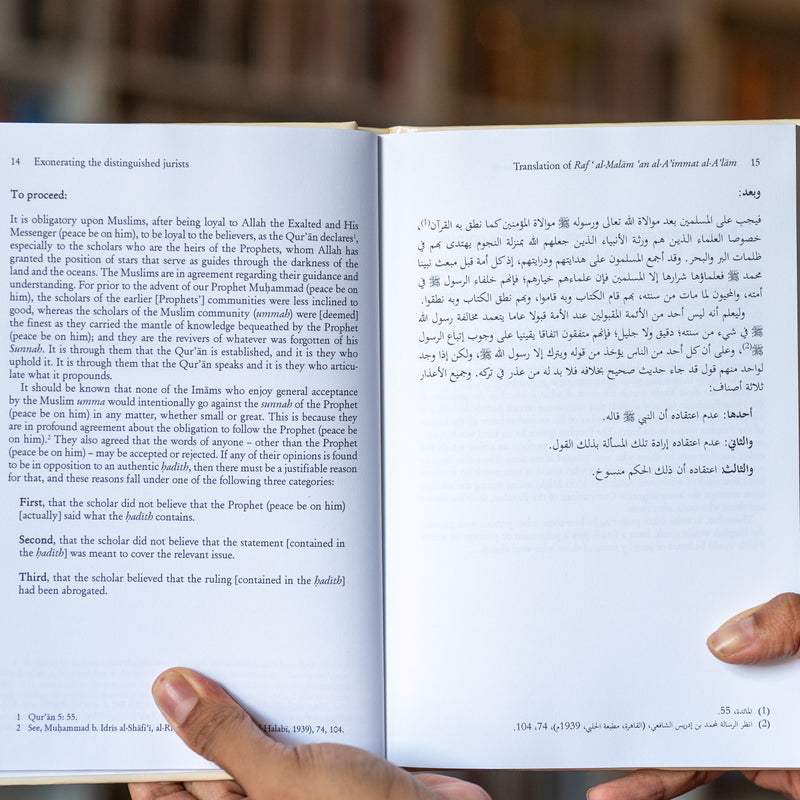 14 Exonerating the distinguished jurists
To proceed:
It is obligatory upon Muslims, after being loyal to Allah the Exalted and His
Messenger (peace be on him), to be loyal to the believers, as the Qur’ān declares¹,
especially to the scholars who are the heirs of the Prophets, whom Allah has
granted the position of stars that serve as guides through the darkness of the
land and the oceans. The Muslims are in agreement regarding their guidance and
understanding. For prior to the advent of our Prophet Muḥammad (peace be on
him), the scholars of the earlier [Prophets’] communities were less inclined to
good, whereas the scholars of the Muslim community (ummah) were [deemed]
the finest as they carried the mantle of knowledge bequeathed by the Prophet
(peace be on him); and they are the revivers of whatever was forgotten of his
Sunnah. It is through them that the Qur’ān is established, and it is they who
uphold it. It is through them that the Qur’ān speaks and it is they who articu-
late what it propounds.
It should be known that none of the Imāms who enjoy general acceptance
by the Muslim umma would intentionally go against the sunnah of the Prophet
(peace be on him) in any matter, whether small or great. This is because they
are in profound agreement about the obligation to follow the Prophet (peace be
on him).² They also agreed that the words of anyone – other than the Prophet
(peace be on him) – may be accepted or rejected. If any of their opinions is found
to be in opposition to an authentic ḥadīth, then there must be a justifiable reason
for that, and these reasons fall under one of the following three categories:
First, that the scholar did not believe that the Prophet (peace be on him)
[actually] said what the ḥadīth contains.
Second, that the scholar did not believe that the statement [contained in
the ḥadīth] was meant to cover the relevant issue.
Third, that the scholar believed that the ruling [contained in the ḥadīth]
had been abrogated.
1 Qur’ān 5: 55.
2 See, Muḥammad b. Idrīs al-Shāfi‘ī, Halabī, 1939), 74, 104.
Translation of Raf‘ al-Malām ‘an al-A’immat al-A‘lām 15
وبعد:
فيجب على المسلمين بعد موالاة الله تعالى ورسوله ﷺ موالاة المؤمنين كما نطق به القرآن(1)،
خصوصا العلماء الذين هم ورثة الأنبياء الذين جعلهم الله بمنزلة النجوم يهتدى بهم في
ظلمات البر والبحر. وقد أجمع المسلمون على هدايتهم ودرايتهم، إذ كل أمة قبل مبعث نبينا
محمد ﷺ فعلماؤها شرارها إلا المسلمين فإن علماءهم خيارهم؛ فإنهم خلفاء الرسول ﷺ في
أمته، والمحيون لما مات من سنته، بهم قام الكتاب وبه قاموا، وبهم نطق الكتاب وبه نطقوا.
وليعلم أنه ليس أحد من الأئمة المقبولين عند الأمة قبولا عاما يتعمد مخالفة رسول الله
ﷺ في شيء من سنته؛ دقيق ولا جليل؛ فإنهم متفقون اتفاقا يقينيا على وجوب إتباع الرسول
ﷺ(2)، وعلى أن كل أحد من الناس يؤخذ من قوله ويترك إلا رسول الله ﷺ، ولكن إذا وجد
لواحد منهم قول قد جاء حديث صحيح بخلافه فلا بد له من عذر في تركه. وجميع الأعذار
ثلاثة أصناف:
أحدها: عدم اعتقاده أن النبي ﷺ قاله.
والثاني: عدم اعتقاده إرادة تلك المسألة بذلك القول.
والثالث: اعتقاده أن ذلك الحكم منسوخ.
(1) المائدة، 55.
(2) انظر الرسالة لمحمد بن إدريس الشافعي، (القاهرة، مطبعة الحلبي، 1939م)، 74، 104.